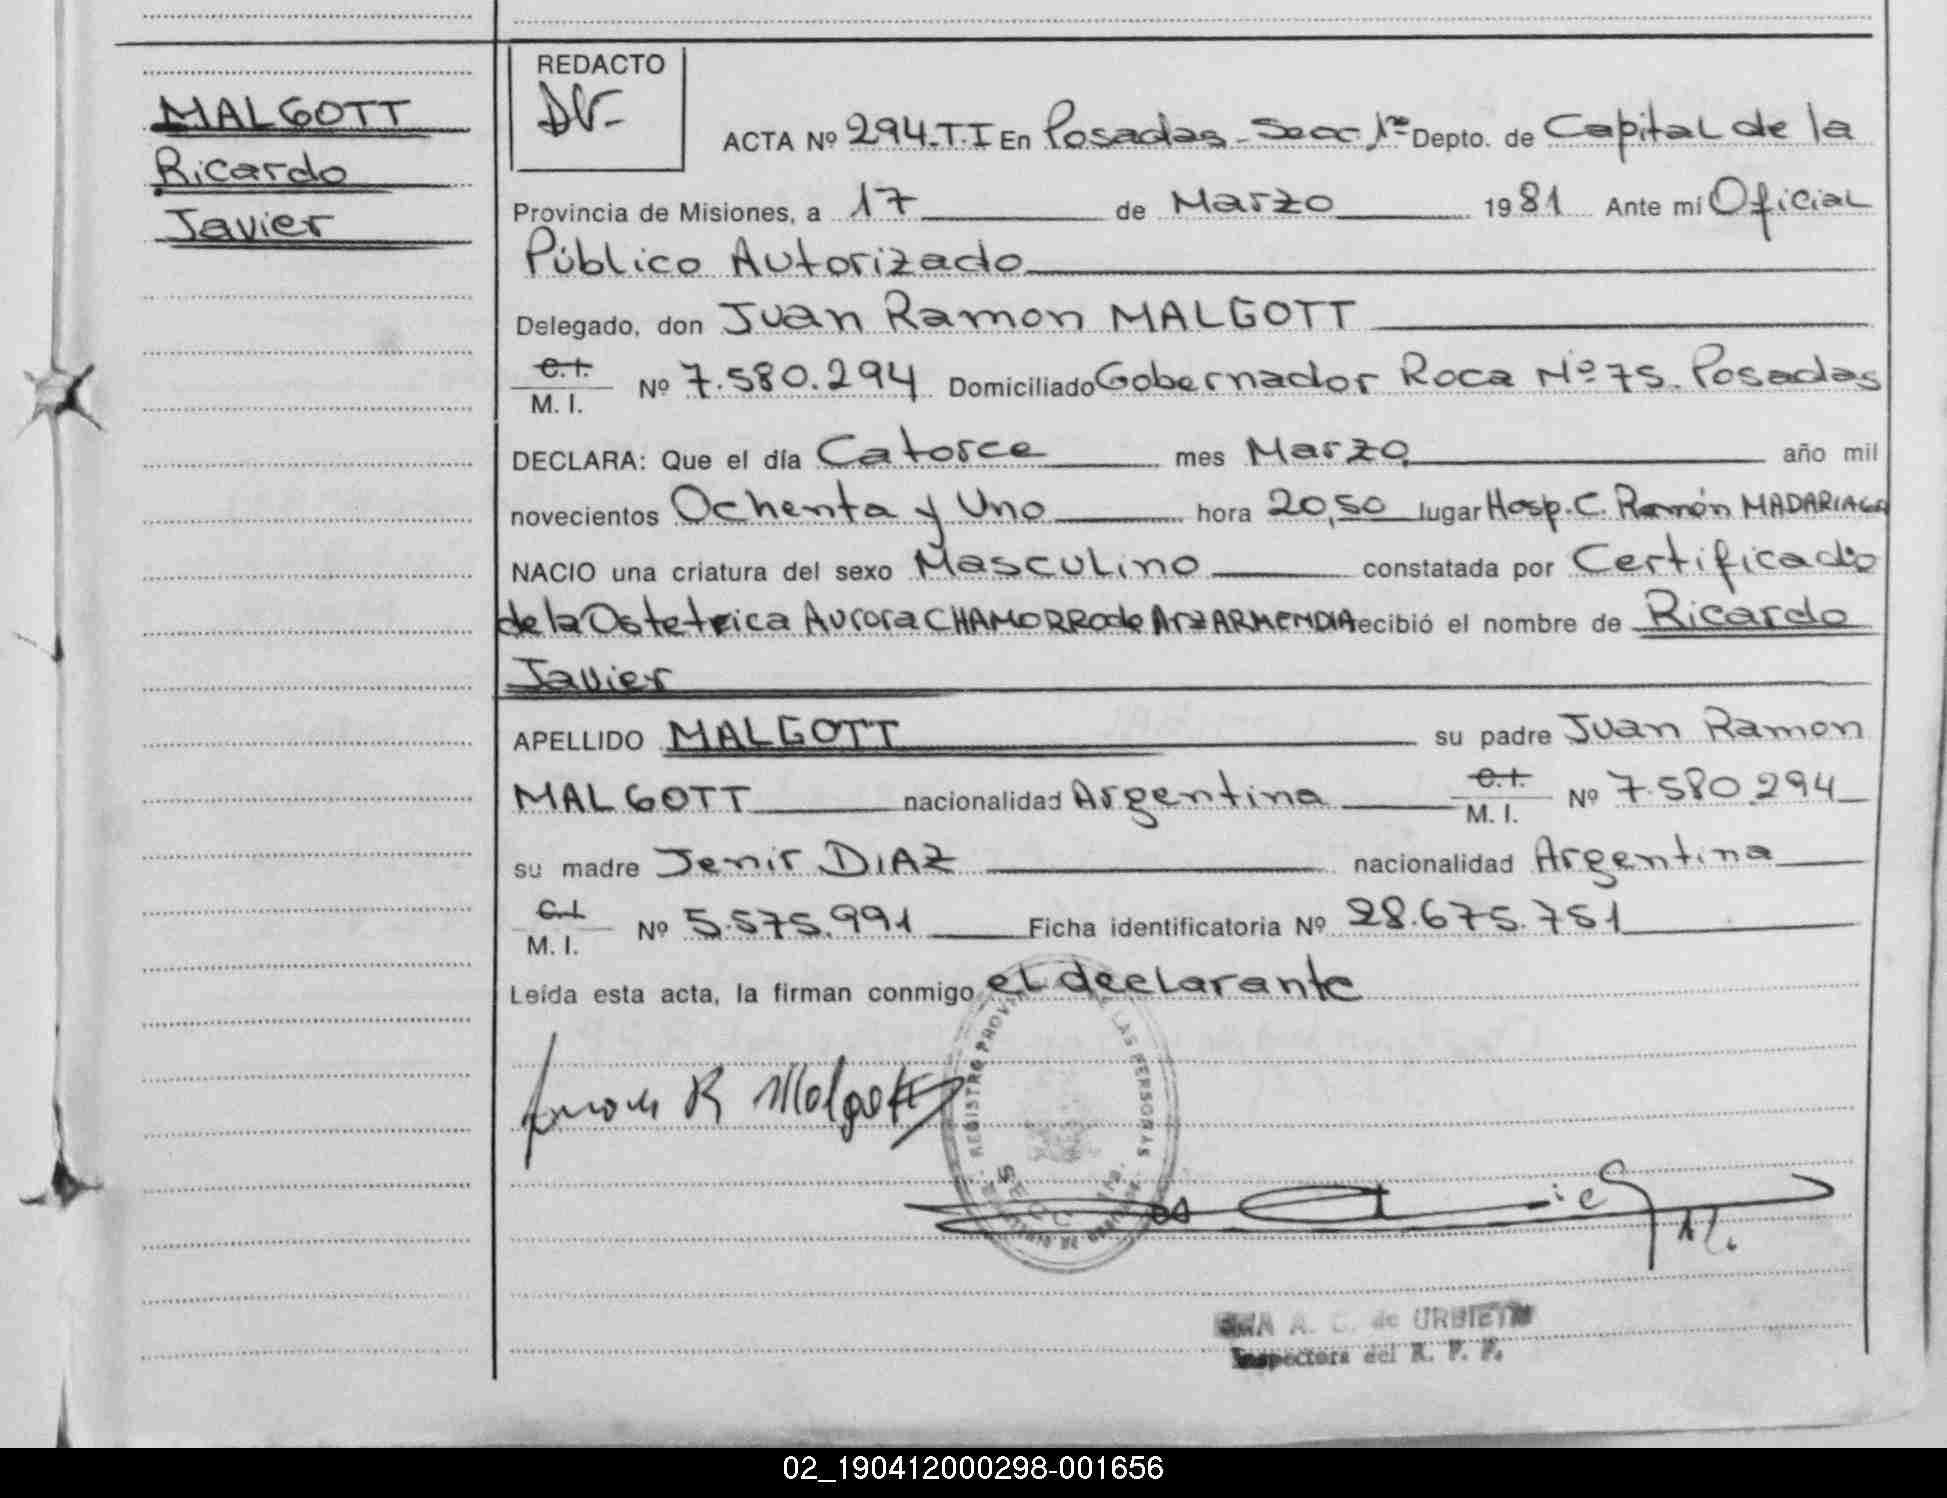 MALGOTT
Ricardo
Javier
REDACTO
ACTA Nº 294-T.I En Posadas - Secc. 1ra Depto. de Capital de la
Provincia de Misiones, a 17 de Marzo 1981 Ante mí Oficial
Público Autorizado
Delegado, don Juan Ramon MALGOTT
C.I.
M. I. Nº 7.580.294 Domiciliado Gobernador Roca Nº 75. Posadas
DECLARA: Que el día Catorce mes Marzo año mil
novecientos Ochenta y Uno hora 20,50 lugar Hosp. C. Ramón MADARIAGA
NACIO una criatura del sexo Masculino constatada por Certificado
de la Ostetrica Aurora CHAMORRO de ArzARMENDIA recibió el nombre de Ricardo
Javier
APELLIDO MALGOTT su padre Juan Ramon
MALGOTT nacionalidad Argentina C.I.
M. I. Nº 7.580.294
su madre Jenir DIAZ nacionalidad Argentina
C.I.
M. I. Nº 5.575.991 Ficha identificatoria Nº 28.675.751
Leída esta acta, la firman conmigo el declarante
Juan R Malgott
REGISTRO PROV LAS PERSONAS
SECC. 1ra.
A. C. de URBIETA
Inspectora del R. P. P.
02_190412000298-001656